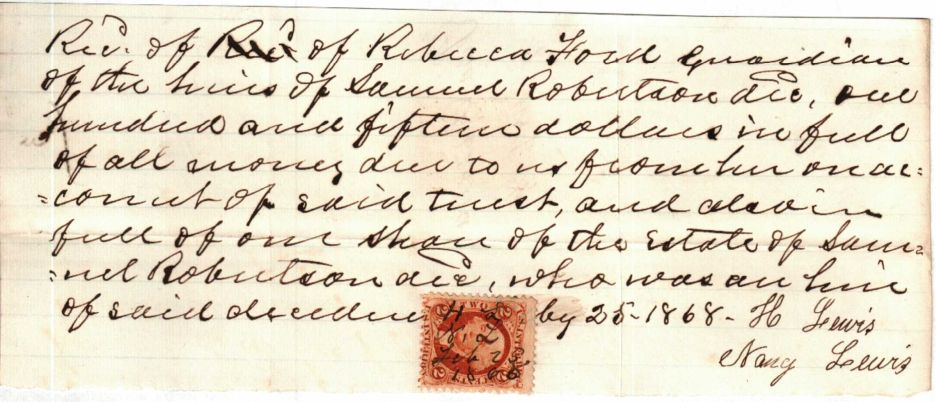 Rec'd. of Rec'd of Rebecca Ford Guardian
of the heirs of Samuel Robertson dec, one
hundred and fifteen dollars in full
of all money due to us from her on ac=
=count of said trust, and also in
full of our share of the Estate of Sam=
=uel Robertson dec, who was an heir
of said deceden by 25-1868- H Lewis
Nancy Lewis
TWO
H
N L
Feb 2